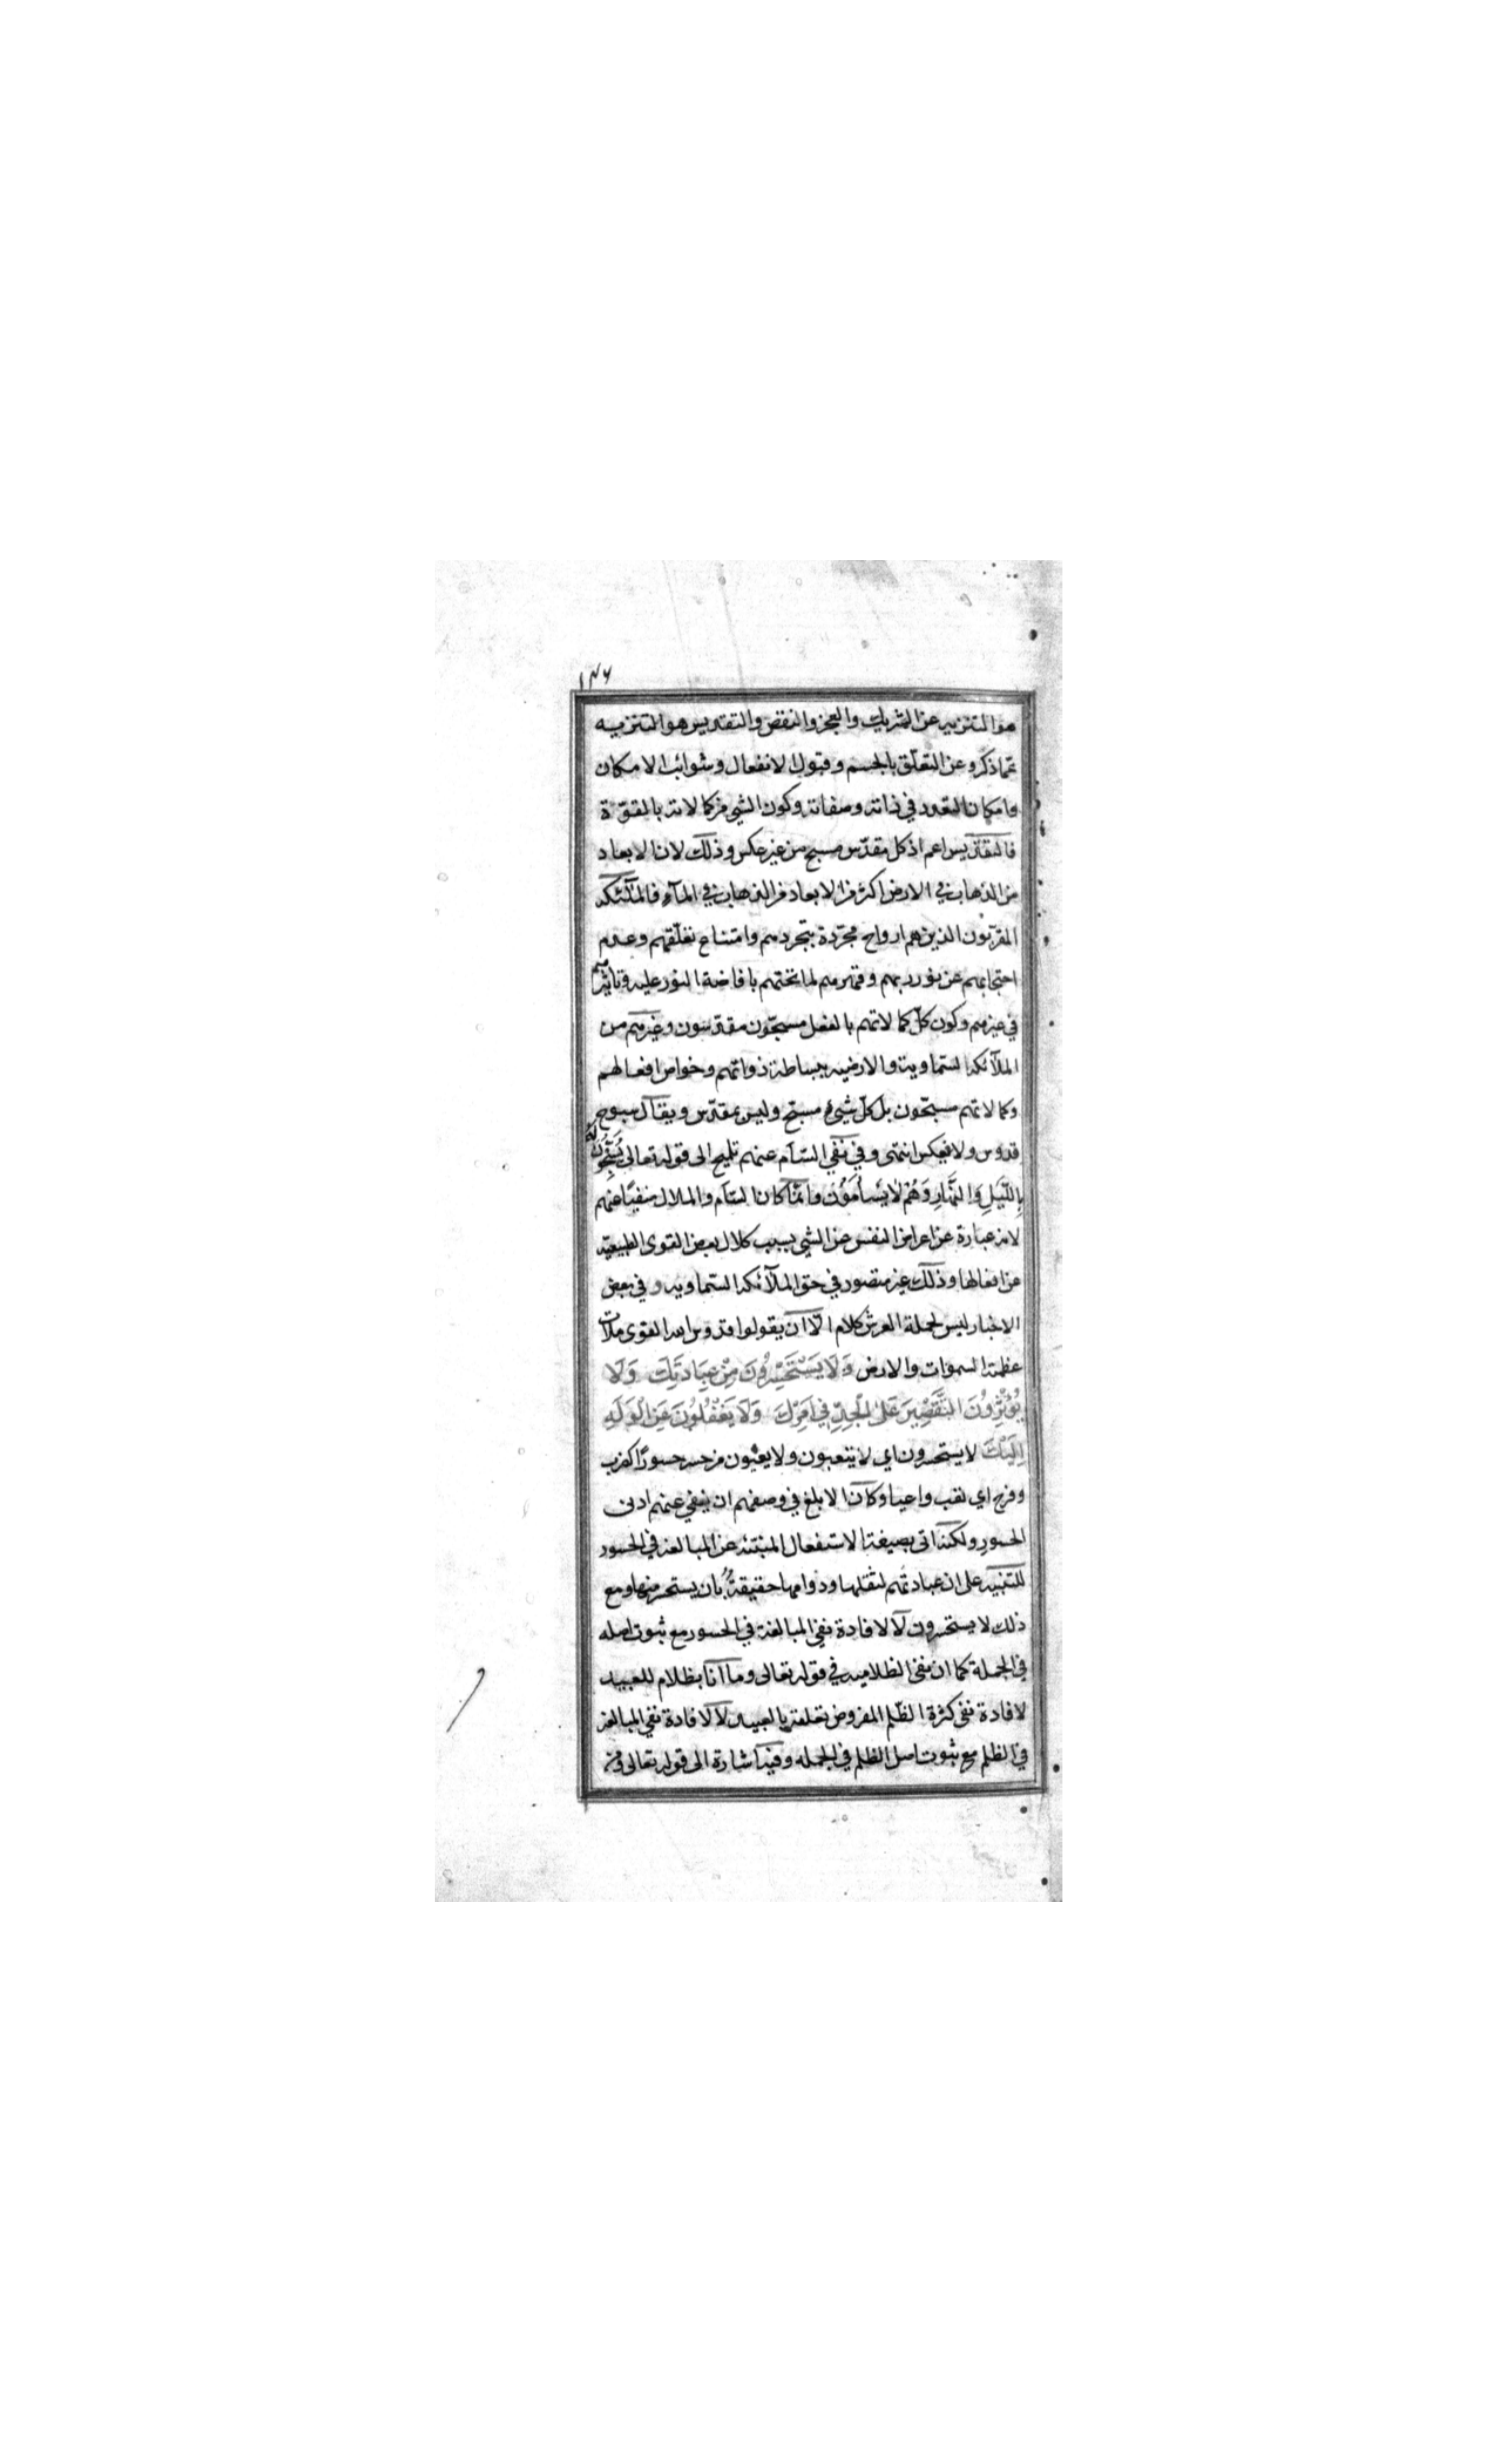 ١٣٦
هو التنزيه عن الشريك والعجز والنقص والتقديس هو التنزيه
عمّا ذكر وعن التعلّق بالجسم وقبول الانفعال وشوائب الامكان
وامكان التعدد في ذاته وصفاته وكون الشي من كمالاته بالقوّة
فالتقديس اعم اذ كل مقدّس مسبح من غير عكس وذلك لان الابعاد
من الذهاب في الارض اكثر من الابعاد من الذهاب في المآء فالملٓئكه
المقرّبون الذين هم ارواح مجرّدة بتجردهم وامتناع تعلّقهم وعدم
احتجابهم عن نور ربهم وقهرهم لما تحتهم بافاضة النور عليه وتاثيرهم
في غيرهم وكون كلّ كمالاتهم بالفعل مسبّحون مقدّسون وغيرهم من
الملآئكه السّماوية والارضيه ببساطة ذواتهم وخواص افعالهم
وكمالاتهم مسبّحون بل كلّ شيء مسبّح وليس بمقدّس ويقال سبوح
قدوس ولا يعكس انتهى وفي نفي السّأم عنهم تلميح الى قوله تعالى يُسَبِّحُونَ لَهُ
بِاللَّيْلِ وَالنَّهَارِ وَهُمْ لَا يَسْأَمُوْنَ وانمّا كان السّأم والملال منفيًا عنهم
لانه عبارة عن اعراض النفس عن الشي بسبب كلال بعض القوى الطبيعيّه
عن افعالها وذلك غير متصور في حق الملآئكه السّماويه وفي بعض
الاخبار ليس لحملة العرش كلام الّا ان يقولوا قدوس الله القوى ملأت
عظمته السموات والارض وَلَا يَسْتَحْسِرُوْنَ مِنْ عِبَادَتِكَ وَلَا
يُؤْثِرُوْنَ التَّقْصِيرَ عَلَى الْجِدِّ فِي اَمْرِكَ وَلَا يَغْفُلُوْنَ عَنِ الْوَلَهِ
اِلَيْكَ لا يستحسرون اي لا يتعبون ولا يعيون من حسر حسورًا كضرب
وفرح اي تعب واعيا وكان الابلغ في وصفهم ان ينفي عنهم ادنى
الحسور ولكنه اتى بصيغة الاستفعال المنبئه عن المبالغه في الحسور
للتنبيه على ان عبادتهم لثقلها ودوامها حقيقة بان يستحسر منها ومع
ذلك لا يستحسرون لا لافادة نفي المبالغة في الحسور مع ثبوت اصله
في الجملة كما ان نفى الظلاميه في قوله تعالى وما انا بظلام للعبيد
لافادة نفى كثرة الظّلم المفروض تعلقه بالعبيد لا لافادة نفي المبالغه
في الظلم مع ثبوت اصل الظلم في الجمله وفيه اشارة الى قوله تعالى ومن